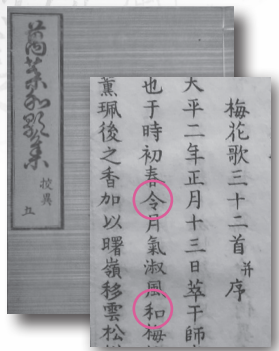 萬葉和歌集
挍異
五
梅花歌三十二首 并序
天平二年正月十三日萃于師
也于時初春令月氣淑風和梅
薫珮後之香加以曙嶺移雲松